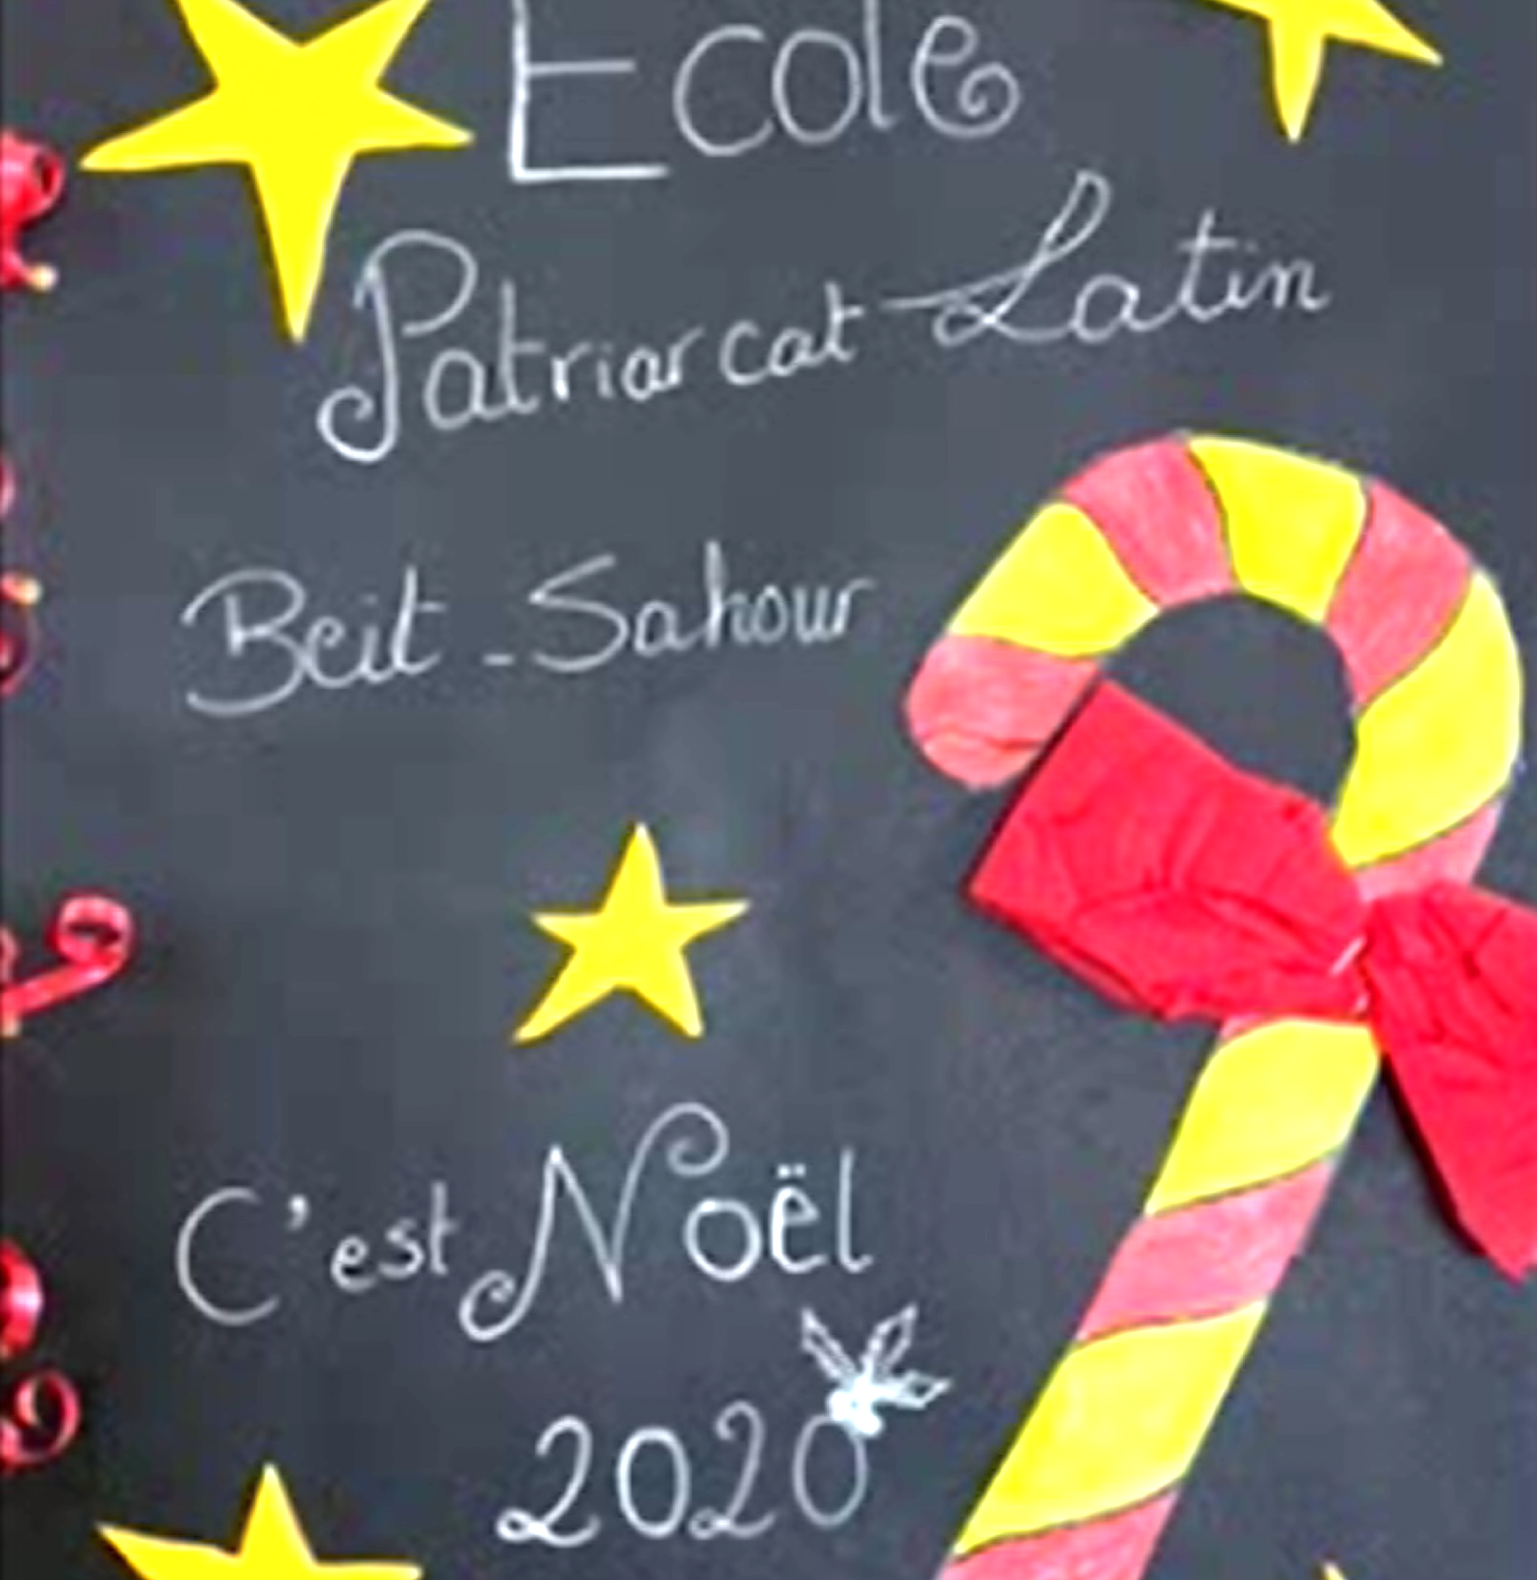 Ecole
Patriarcat Latin
Beit-Sahour
C'est Noël
2020